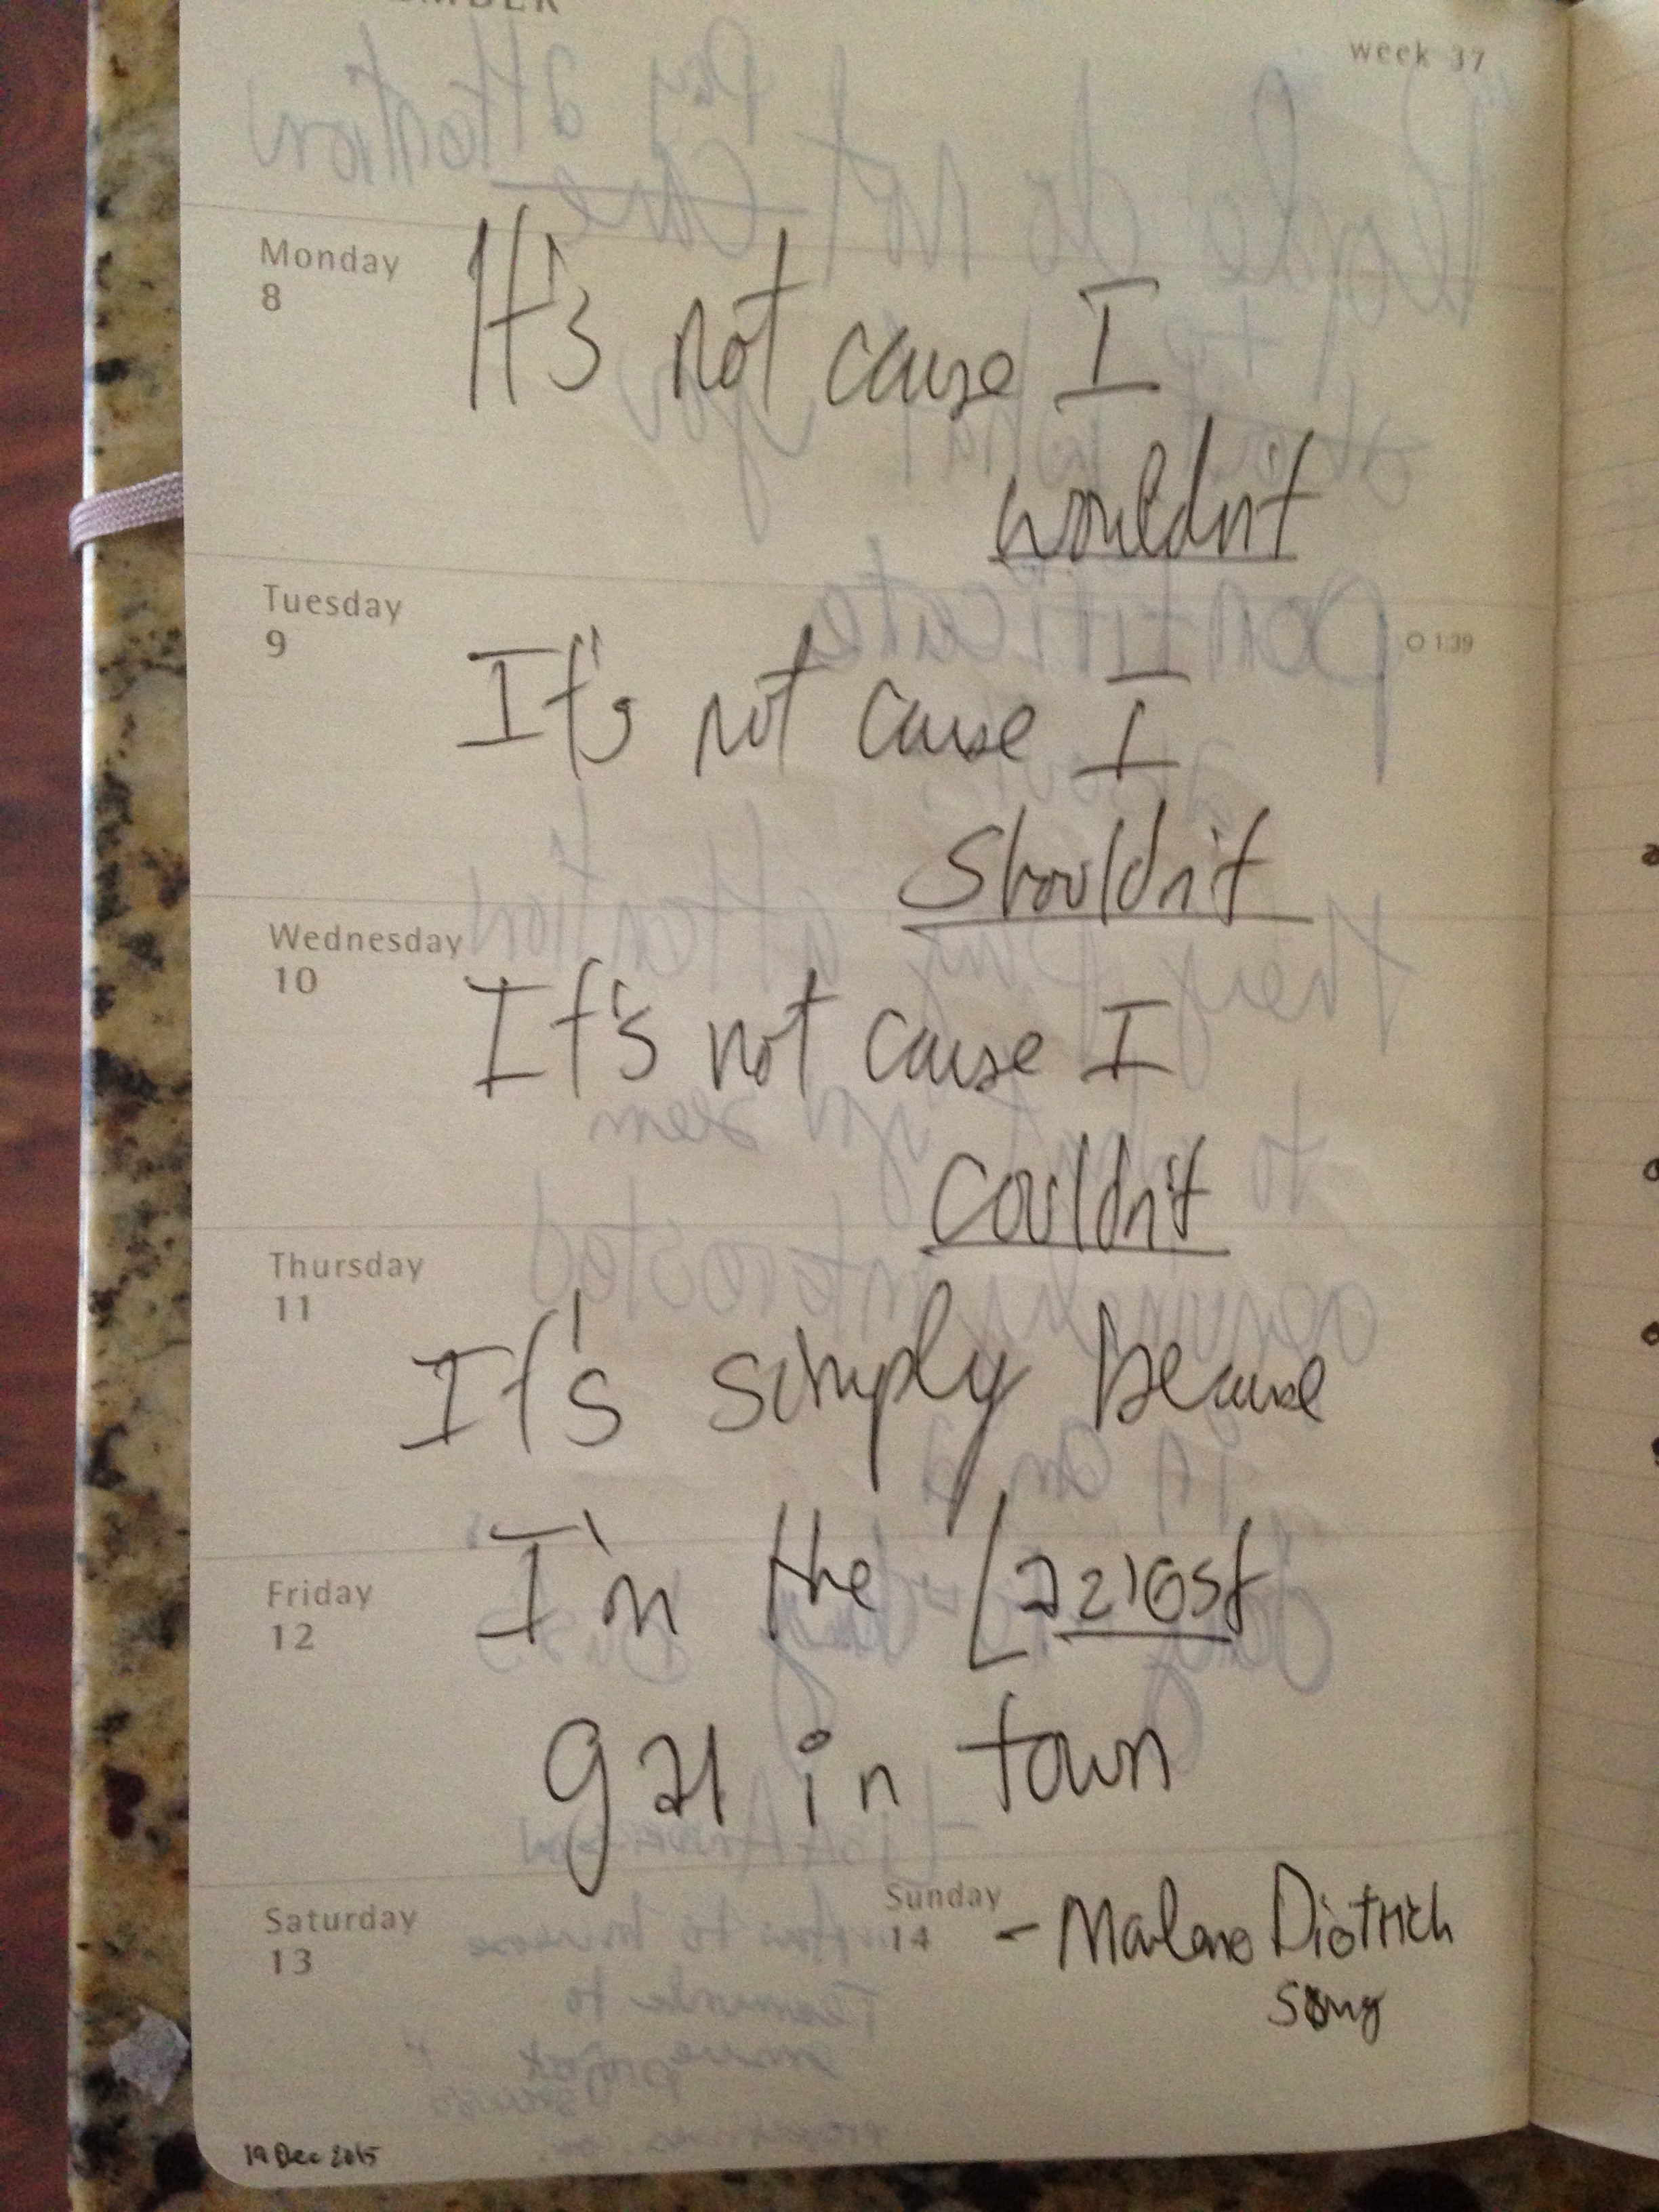 week 37
Monday
8
It's not cause I
wouldn't
Tuesday
9
O 1:39
It's not cause I
Shouldn't
Wednesday
10
It's not cause I
couldn't
Thursday
11
It's simply because
Friday
12
I'm the Laziest
gal in town
Saturday
13
Sunday
14
- Marlene Dietrich
song
19 Dec 2015